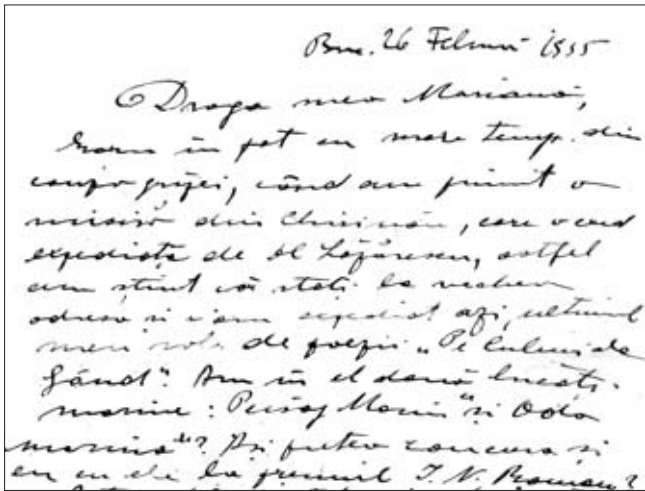 Buc. 26 Februar 1935
Draga mea Mariana,
Eram în pat cu mare temp. din
cauza gripei, când am primit o
din Chisinău, care
expediată de dl Lăzărescu, astfel
am știut că stați la vechea
adresă si v'am expediat azi, ultimul
meu vol. de poezii „Pe culmi de
Gând". Am în el două bucăți
marine: Peisaj Marin" si Oda
marină"? Asi putea concura si
eu cu ele la premiul I. N. Roman?